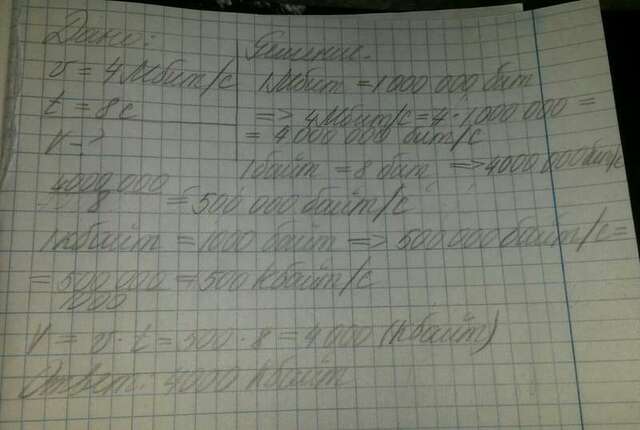 Дано:
v = 4 Мбит/с
t = 8 с
V - ?
Решение.
1 Мбит = 1 000 000 бит
=> 4 Мбит/с = 4 · 1,000 000 =
= 4 000 000 бит/с
1 байт = 8 бит => 4000 000 бит/с
4000 000
8 = 500 000 байт/с
1 кбайт = 1000 байт => 500 000 байт/с =
= 500 000 = 500 кбайт/с
1000
V = v · t = 500 · 8 = 4 000 (кбайт)
Ответ: 4000 кбайт